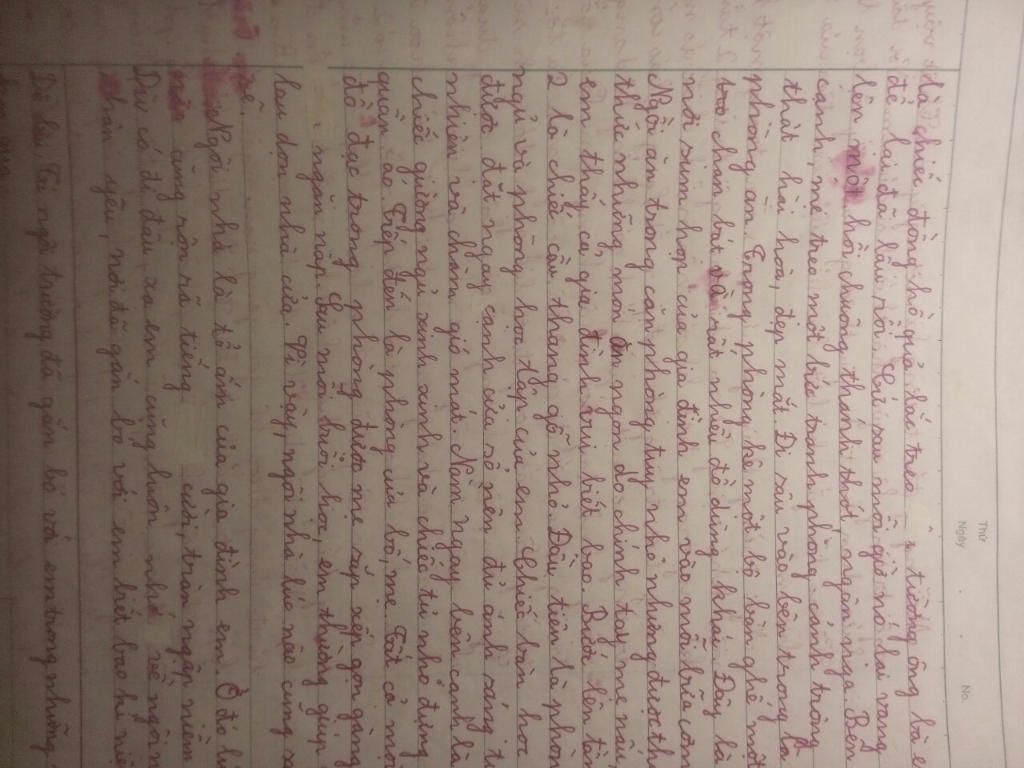 Thứ
Ngày
No.
là chiếc đồng hồ quả lắc treo tường ông bà
để lại đã lâu rồi. Cứ sau mỗi giờ nó lại vang
lên một hồi chuông thánh thót, ngân nga. Bên
cạnh, mẹ treo một bức tranh phong cảnh trông
thật hài hòa, đẹp mắt. Đi sâu vào bên trong là
phòng ăn. Trong phòng kê một bộ bàn ghế một
bao chan bát và rất nhiều đồ dùng khác. Đây là
nơi sum họp của gia đình em vào mỗi bữa cơm
Ngồi ăn trong căn phòng tuy nhỏ nhưng được th
thức những món ăn ngon do chính tay mẹ nấu
em thấy cả gia đình vui biết bao. Bước lên tầ
2 là chiếc cầu thang gỗ nhỏ. Đầu tiên là phòn
ngủ và phòng học tập của em. Chiếc bàn học
được đặt ngay cạnh cửa sổ nên đủ ánh sáng tự
nhiên và chậm gió mát. Nằm ngay bên cạnh là
chiếc giường ngủ xinh xinh và chiếc tủ nhỏ đựng
quần áo. Tiếp đến là phòng của bố, mẹ. Tất cả mọi
đồ đạc trong phòng được mẹ sắp xếp gọn gàng
, ngăn nắp. Sau mỗi buổi học, em thường giúp
lau dọn nhà cửa. Vì vậy, ngôi nhà lúc nào cũng s
sẽ.
Ngôi nhà là tổ ấm của gia đình em. Ở đó lú
nào cũng rôn rã tiếng cười, tràn ngập niềm
Dù có đi đâu xa em cũng luôn nhớ về ngôi n
thân yêu, nơi đã gắn bó với em biết bao kỉ niệ
Đề bài: Tả ngôi trường đã gắn bó với em trong những